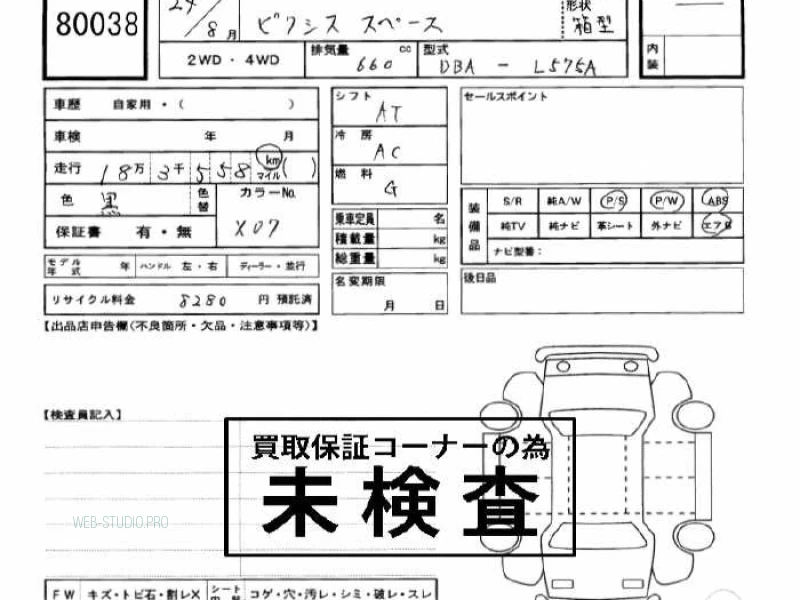 80038
24/8月
ピクシス スペース
形状
箱型
2WD・4WD
排気量 660 cc
型式 DBA - L575A
内装
車歴 自家用・( )
車検 年 月
走行 18万3千558 km マイル ( )
色 黒 色替
カラーNo. X07
保証書 有・無
シフト AT
冷房 AC
燃料 G
乗車定員 名
積載量 kg
総重量 kg
名変期限 月 日
セールスポイント
装備品
S/R 純A/W P/S P/W ABS
純TV 純ナビ 革シート 外ナビ エアB
ナビ型番:
後日品
モデル年式 年 ハンドル 左・右 ディーラー・並行
リサイクル料金 8280 円 預託済
【出品店申告欄(不良箇所・欠品・注意事項等)】
【検査員記入】
買取保証コーナーの為
未検査
WEB-STUDIO.PRO
FW キズ・トビ石・割レX シート コゲ・穴・汚レ・シミ・破レ・スレ